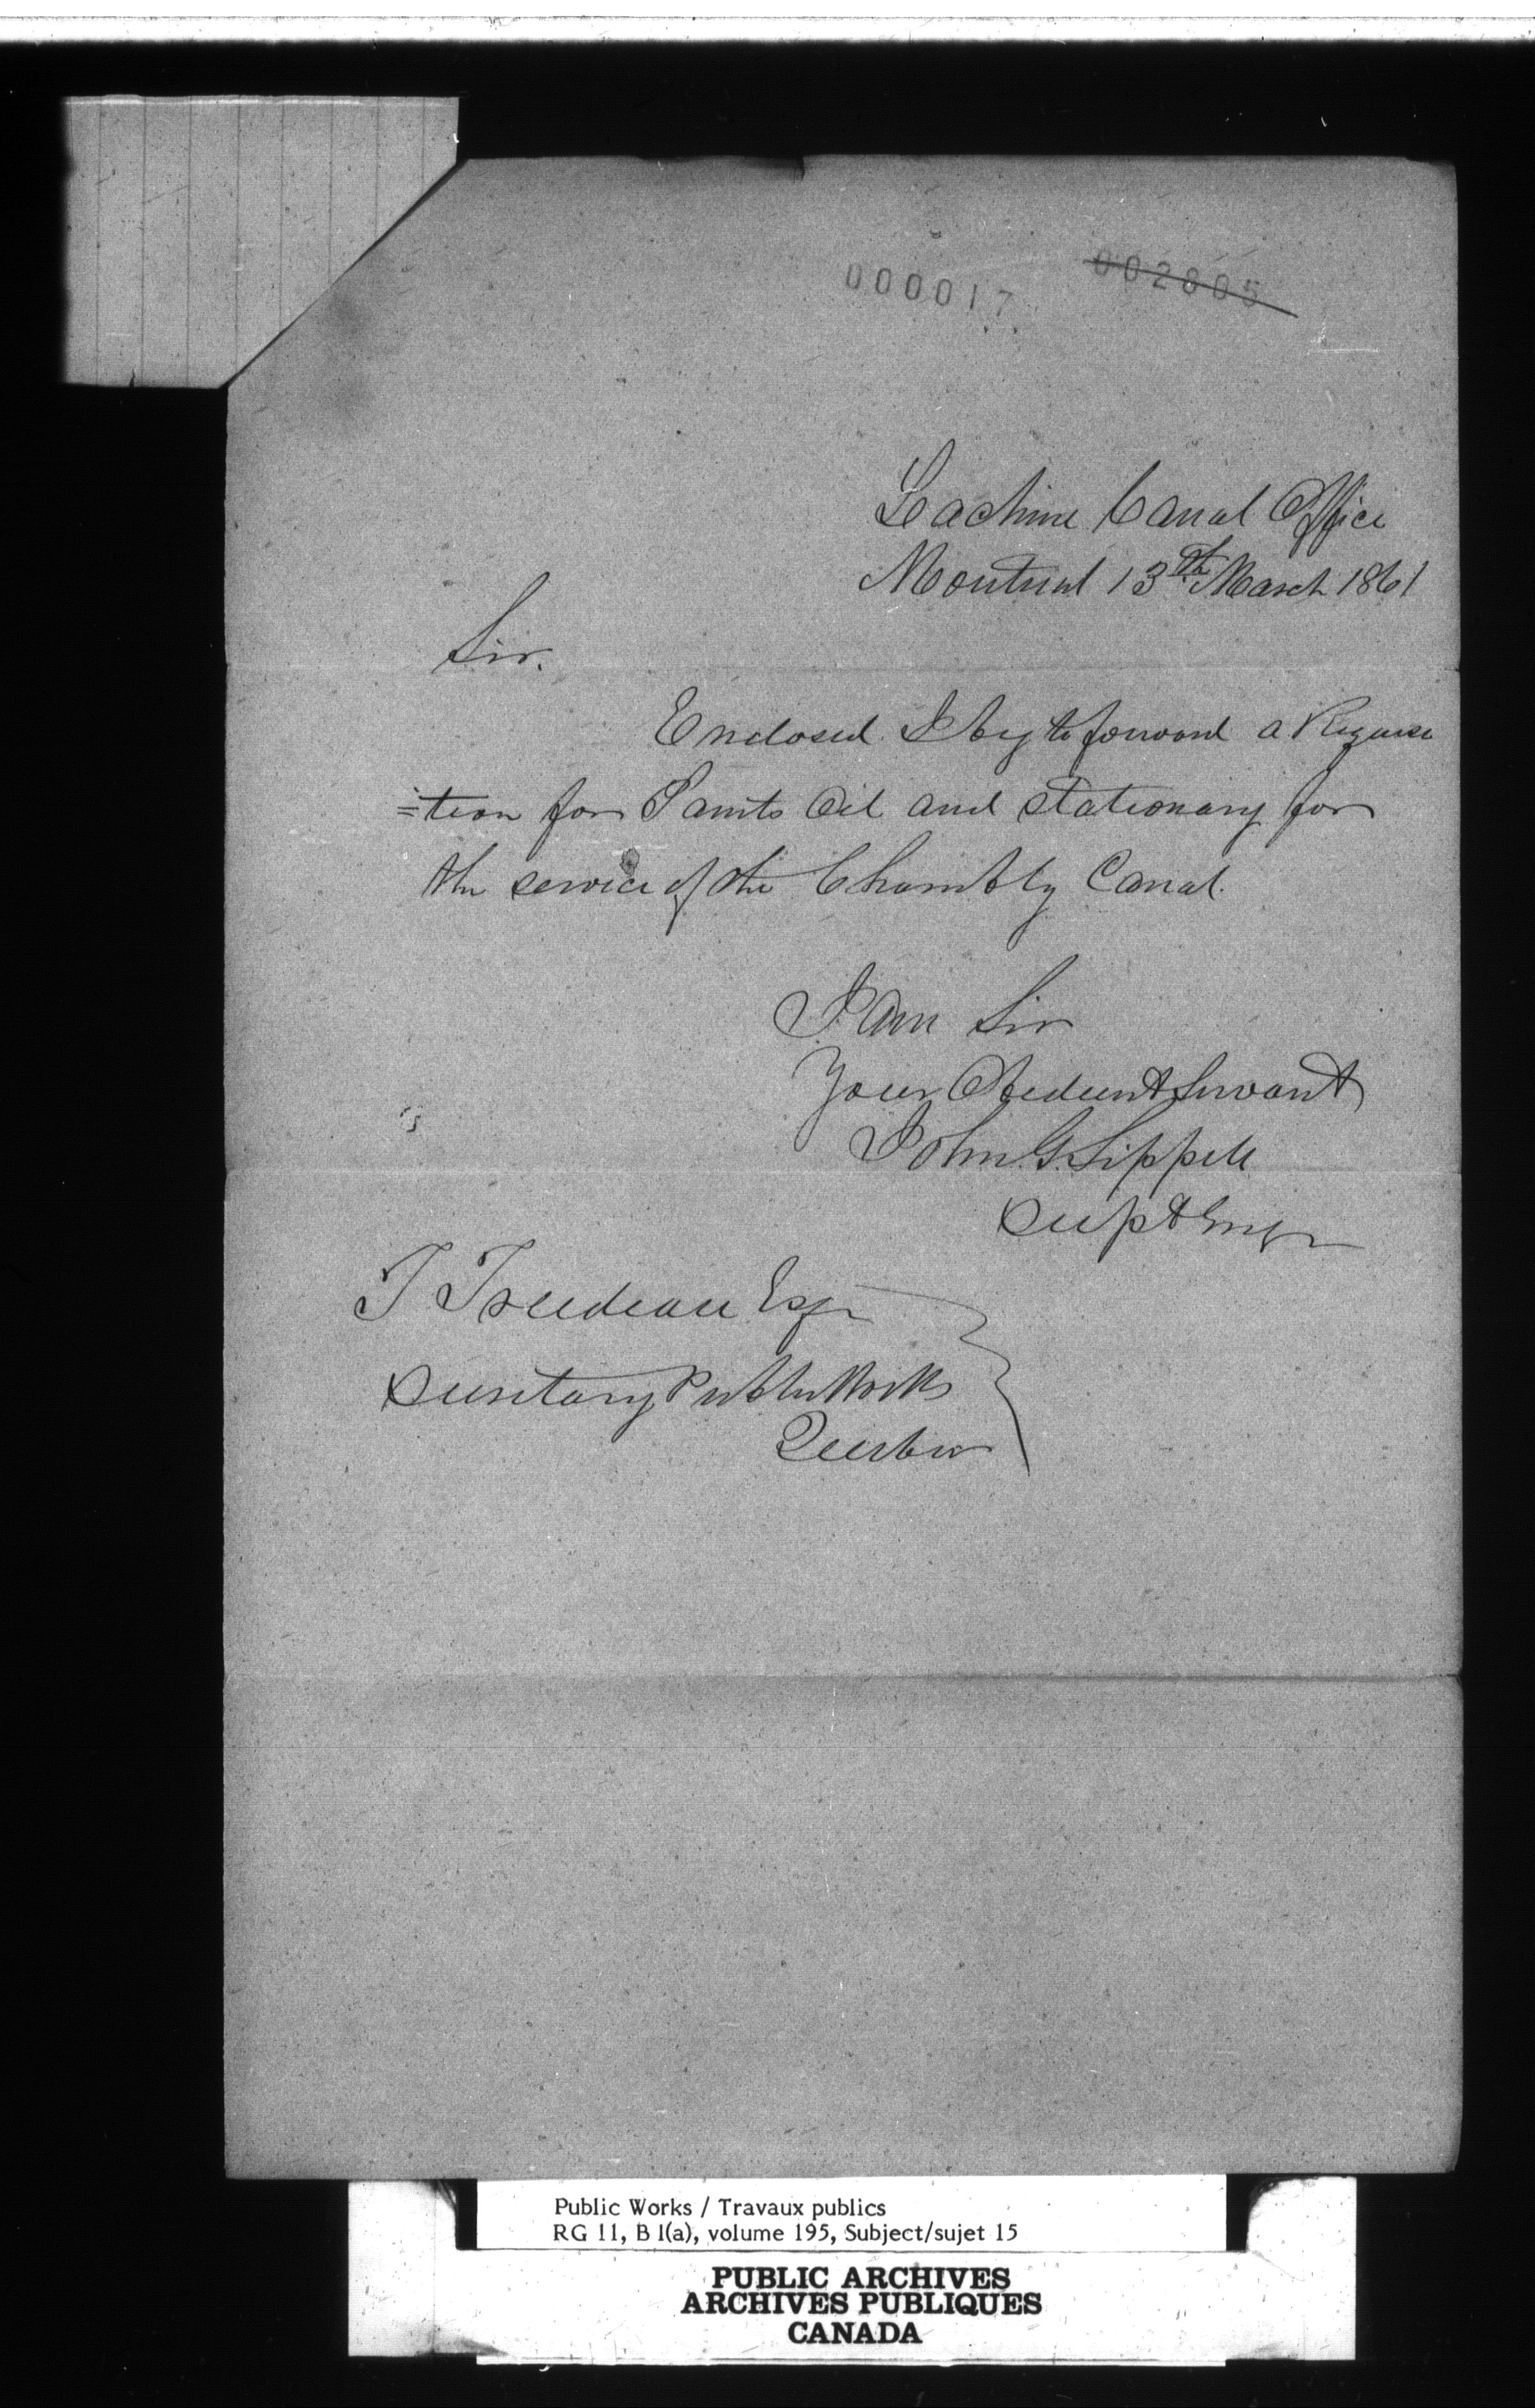 000017 002805
Lachine Canal Office
Montreal 13th March 1861
Sir.
Enclosed I beg to forward a Requisi
=tion for Paints Oil and Stationary for
the service of the Chambly Canal.
I am Sir
Your Obedient Servant
John G. Sippell
Supt Engr
T Trudeau Esqr
Secretary Public Works
Quebec
Public Works / Travaux publics
RG 11, B 1(a), volume 195, Subject/sujet 15
PUBLIC ARCHIVES
ARCHIVES PUBLIQUES
CANADA